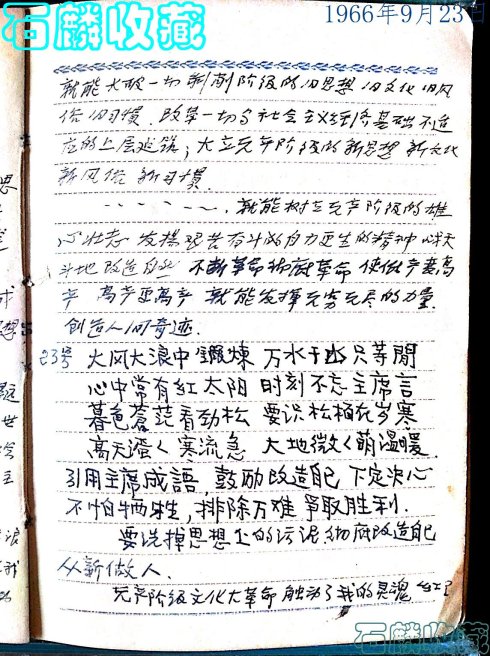 石麟收藏
1966年9月23日
就能大破一切剥削阶级的旧思想 旧文化 旧风
俗 旧习惯. 改革一切与社会主义经济基础不适
应的上层建筑; 大立无产阶级的新思想 新文化
新风俗 新习惯.
就能树立无产阶级的雄
心壮志 发揚艰苦奋斗的自力更生的精神 战天
斗地 改造自然 不断革命彻底革命 使低产变高
产 高产更高产 就能发挥无穷无尽的力量.
创造人间奇迹.
23号 大风大浪中鍛煉 万水千山只等閒
心中常有紅太阳 时刻不忘主席言
暮色蒼茫看劲松 要识松柏在岁寒
高天滚〻寒流急 大地微〻萌温暖.
引用主席成語, 鼓励改造自己 下定决心
不怕牺牲, 排除万难 爭取胜利.
要洗掉思想上的污泥 彻底改造自己
从新做人.
无产阶级文化大革命 触动了我的灵魂
石麟收藏